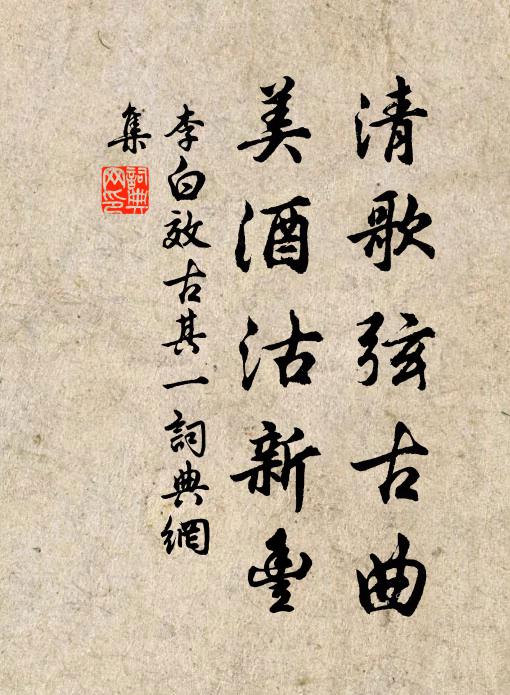 清歌弦古曲
美酒沽新豐
李白效古其一詞典網
集
詞典
网印